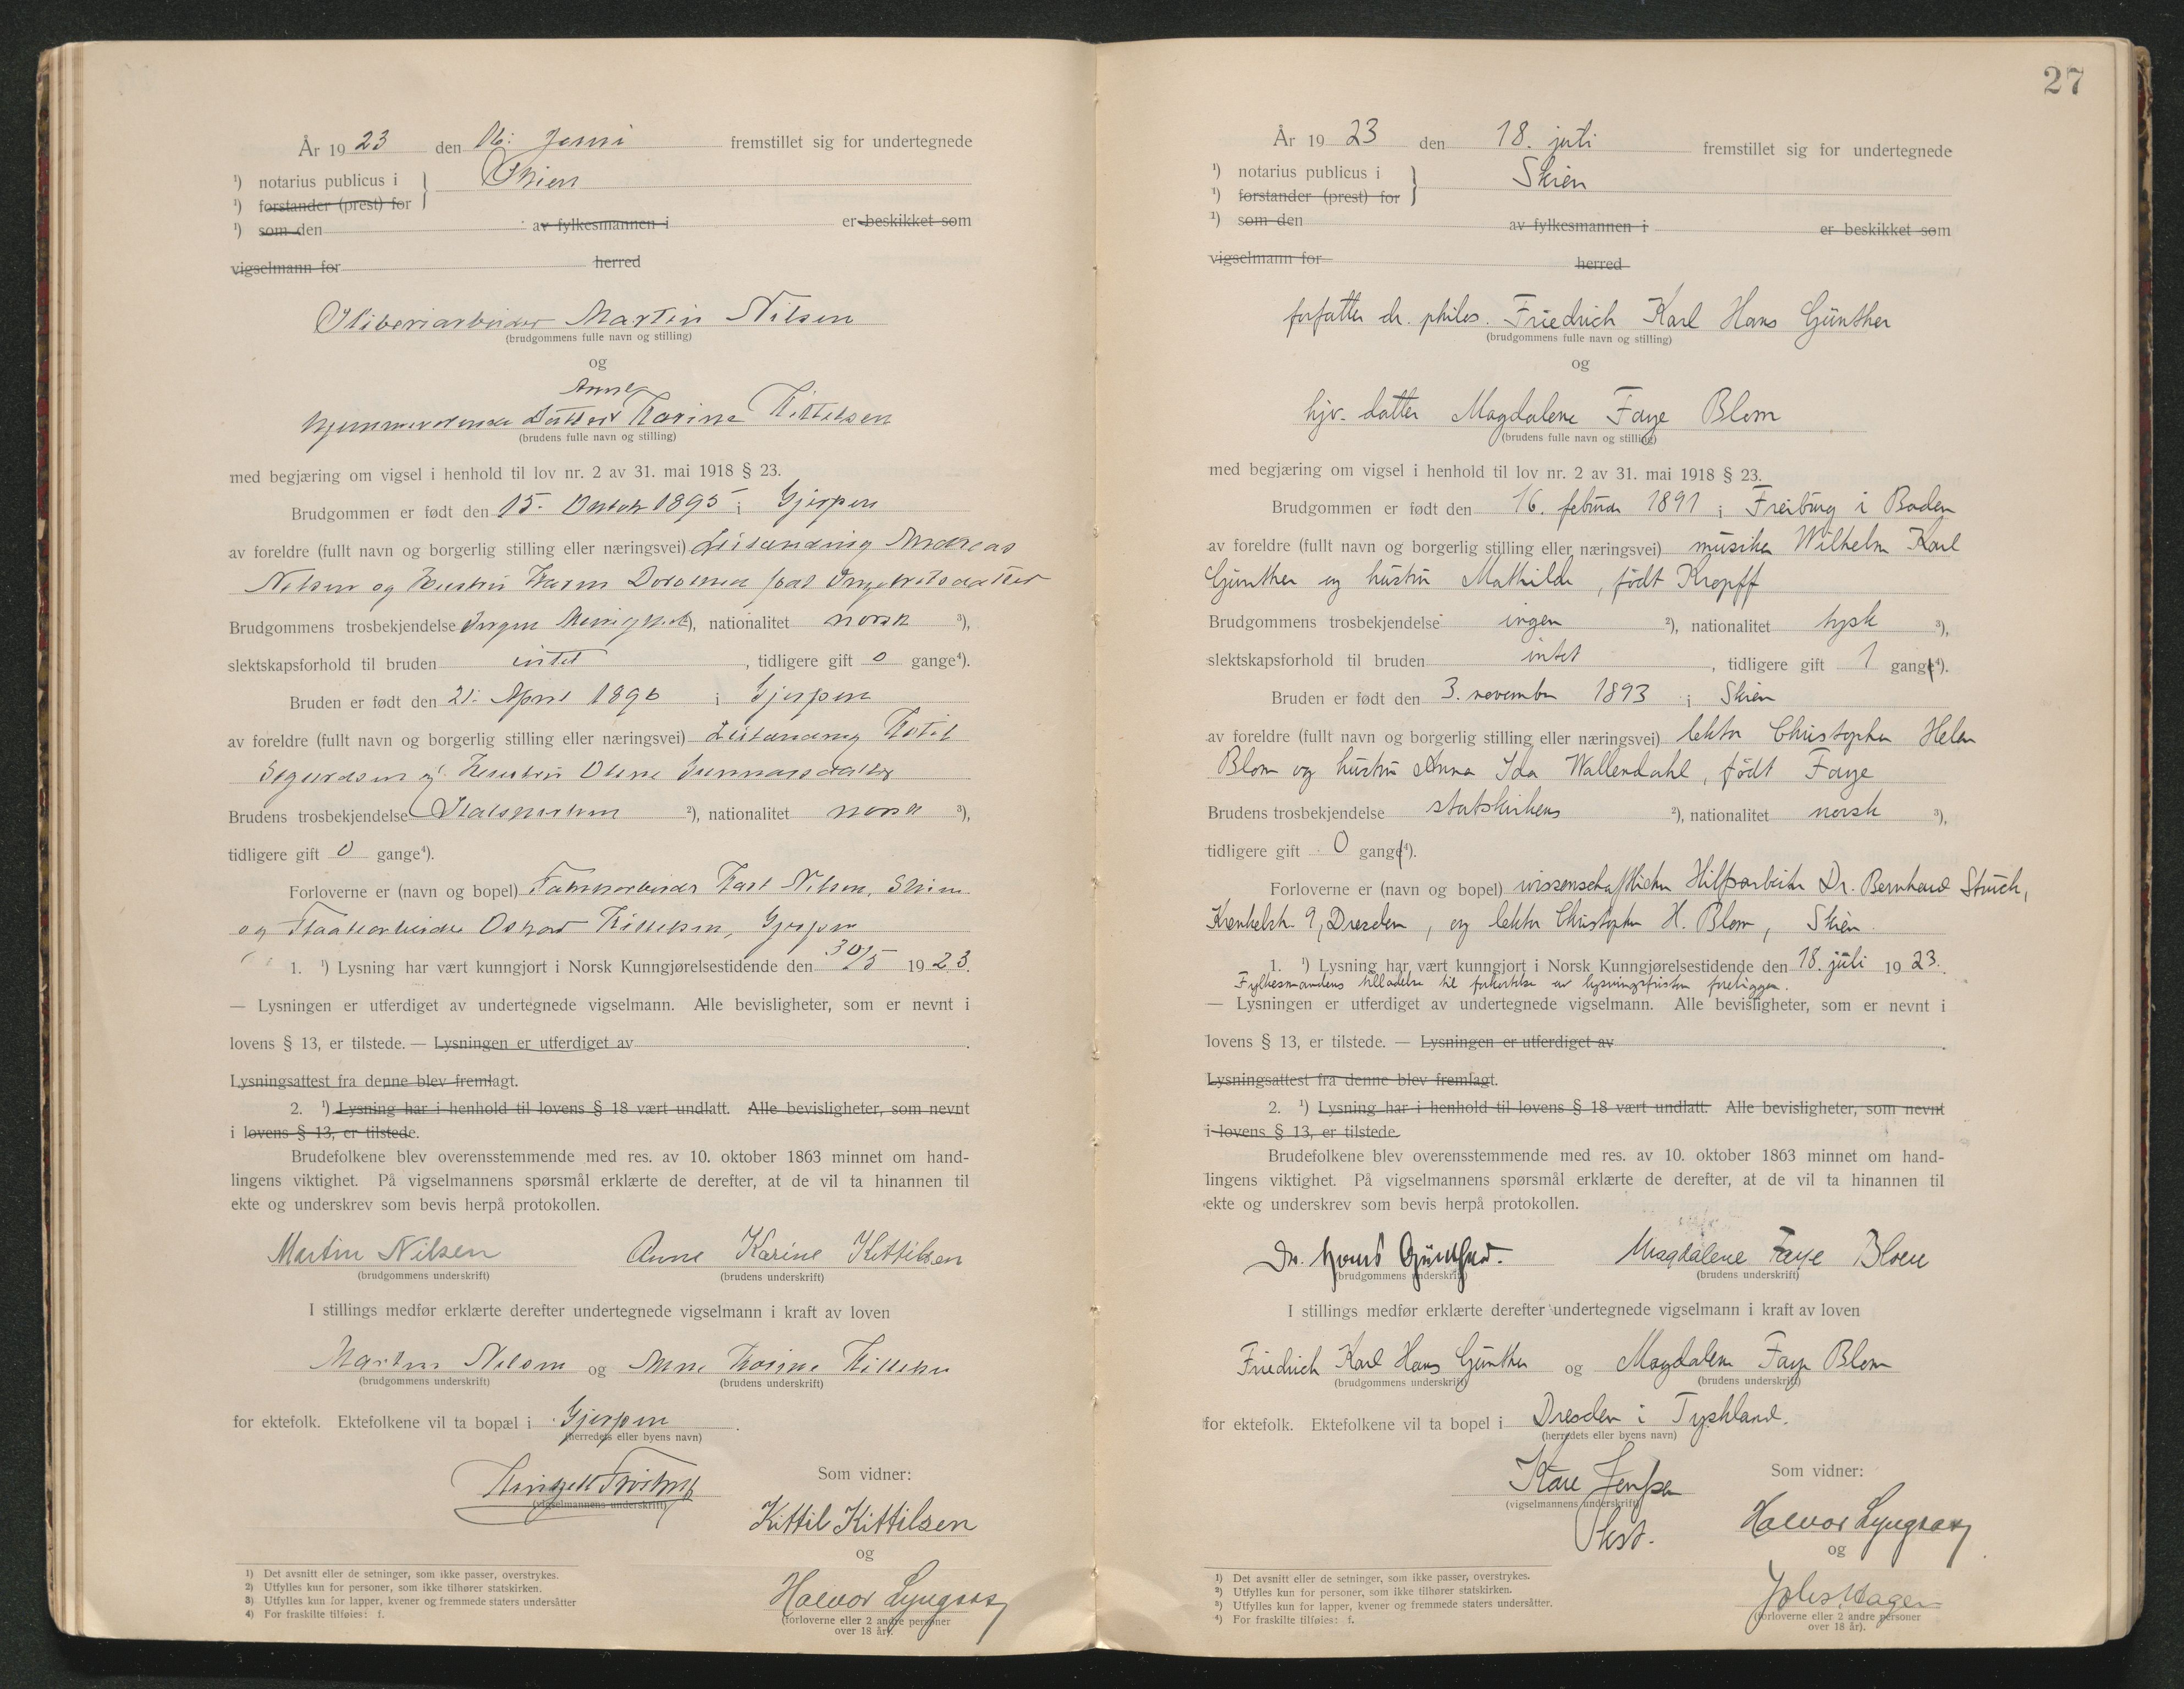 År 1923 den 16. Juni fremstillet sig for undertegnede
¹) notarius publicus i } Skien
¹) forstander (prest) for
¹) som den av fylkesmannen i er beskikket som
vigselmann for herred
Sliberiarbeider Martin Nilsen
(brudgommens fulle navn og stilling)
og
Anne
hjemmeværende Datter Karine Kittilsen
(brudens fulle navn og stilling)
med begjæring om vigsel i henhold til lov nr. 2 av 31. mai 1918 § 23.
Brudgommen er født den 15. Oktob 1895 i Gjerpen
av foreldre (fullt navn og borgerlig stilling eller næringsvei) Leilænding Andreas
Nilsen og Hustru Karen Dorothea født Ingebretsdatter
Brudgommens trosbekjendelse Ingen Menighet ²), nationalitet norsk ³),
slektskapsforhold til bruden intet, tidligere gift 0 gange⁴).
Bruden er født den 21. April 1896 i Gjerpen
av foreldre (fullt navn og borgerlig stilling eller næringsvei) Leilænding Kittil
Sigurdsen og Hustru Olene Gunnarsdatter
Brudens trosbekjendelse Statskirken ²), nationalitet norsk ³),
tidligere gift 0 gange⁴).
Forloverne er (navn og bopel) Karl Nilsen, Skien
og Oskar Kittilsen, Gjerpen
1. ¹) Lysning har vært kunngjort i Norsk Kunngjørelsestidende den 30/5 1923.
— Lysningen er utferdiget av undertegnede vigselmann. Alle bevisligheter, som er nevnt i
lovens § 13, er tilstede. — Lysningen er utferdiget av .
Lysningsattest fra denne blev fremlagt.
2. ¹) Lysning har i henhold til lovens § 18 vært undlatt. Alle bevisligheter, som nevnt
i lovens § 13, er tilstede.
Brudefolkene blev overensstemmende med res. av 10. oktober 1863 minnet om hand-
lingens viktighet. På vigselmannens spørsmål erklærte de derefter, at de vil ta hinannen til
ekte og underskrev som bevis herpå protokollen.
Martin Nilsen Anne Karine Kittilsen
(brudgommens underskrift) (brudens underskrift)
I stillings medfør erklærte derefter undertegnede vigselmann i kraft av loven
Martin Nilsen og Anne Karine Kittilsen
(brudgommens underskrift) (brudens underskrift)
for ektefolk. Ektefolkene vil ta bopæl i Gjerpen .
(herredets eller byens navn)
Som vidner:
(vigselmannens underskrift)
Kittil Kittilsen
og
Halvor Lyngaas
(forloverne eller 2 andre personer
over 18 år).
1) Det avsnitt eller de setninger, som ikke passer, overstrykes.
2) Utfylles kun for personer, som ikke tilhører statskirken.
3) Utfylles kun for lapper, kvener og fremmede staters undersåtter
4) For fraskilte tilføies: f.
27
År 1923 den 18. juli fremstillet sig for undertegnede
¹) notarius publicus i } Skien
¹) forstander (prest) for
¹) som den av fylkesmannen i er beskikket som
vigselmann for herred
forfatter dr. philos. Friedrich Karl Hans Günther
(brudgommens fulle navn og stilling)
og
hjv. datter Magdalene Faye Blom
(brudens fulle navn og stilling)
med begjæring om vigsel i henhold til lov nr. 2 av 31. mai 1918 § 23.
Brudgommen er født den 16. februar 1891 i Freiburg i Baden
av foreldre (fullt navn og borgerlig stilling eller næringsvei) musiker Wilhelm Karl
Günther og hustru Mathilde, født Kropff
Brudgommens trosbekjendelse ingen ²), nationalitet tysk ³),
slektskapsforhold til bruden intet, tidligere gift 1 gange⁴).
Bruden er født den 3. november 1893 i Skien
av foreldre (fullt navn og borgerlig stilling eller næringsvei) lektor Christopher Helen
Blom og hustru Anna Ida Wallendahl, født Faye
Brudens trosbekjendelse statskirkens ²), nationalitet norsk ³),
tidligere gift 0 gange⁴).
Forloverne er (navn og bopel) wissenschaftlicher Hilfsarbeiter Dr. Bernhard Struck,
Krenkelstr. 9, Dresden, og lektor Christopher H. Blom, Skien.
1. ¹) Lysning har vært kunngjort i Norsk Kunngjørelsestidende den 18. juli 1923.
Fylkesmandens tilladelse til forkortelse av lysningsfristen foreligger.
— Lysningen er utferdiget av undertegnede vigselmann. Alle bevisligheter, som er nevnt i
lovens § 13, er tilstede. — Lysningen er utferdiget av .
Lysningsattest fra denne blev fremlagt.
2. ¹) Lysning har i henhold til lovens § 18 vært undlatt. Alle bevisligheter, som nevnt
i lovens § 13, er tilstede.
Brudefolkene blev overensstemmende med res. av 10. oktober 1863 minnet om hand-
lingens viktighet. På vigselmannens spørsmål erklærte de derefter, at de vil ta hinannen til
ekte og underskrev som bevis herpå protokollen.
Dr. Hans Günther. Magdalene Faye Blom
(brudgommens underskrift) (brudens underskrift)
I stillings medfør erklærte derefter undertegnede vigselmann i kraft av loven
Friedrich Karl Hans Günther og Magdalene Faye Blom
(brudgommens underskrift) (brudens underskrift)
for ektefolk. Ektefolkene vil ta bopel i Dresden i Tyskland.
(herredets eller byens navn)
Kåre Jenssen Som vidner:
(vigselmannens underskrift)
Halvor Lyngaas
og
(forloverne eller 2 andre personer
over 18 år).
1) Det avsnitt eller de setninger, som ikke passer, overstrykes.
2) Utfylles kun for personer, som ikke tilhører statskirken.
3) Utfylles kun for lapper, kvener og fremmede staters undersåtter.
4) For fraskilte tilføies: f.